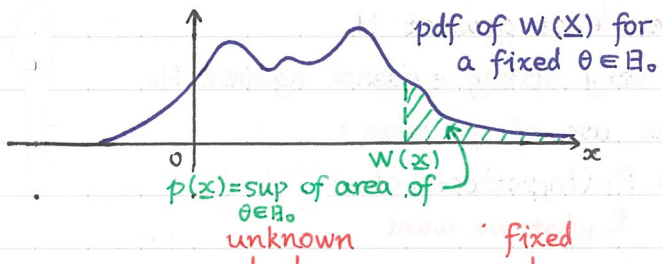 pdf of W(X̲) for
a fixed θ ∈ ⊟₀
0
W(x̲)
x
p(x̲) = sup of area of
θ∈⊟₀
unknown
fixed